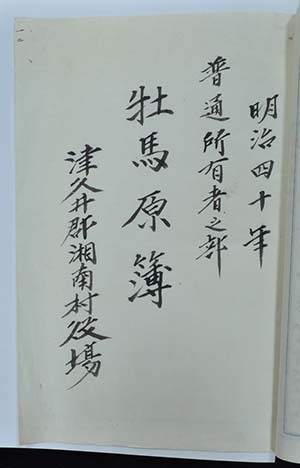 明治四十年
普通所有者之部
牡馬原簿
津久井郡湘南村役場